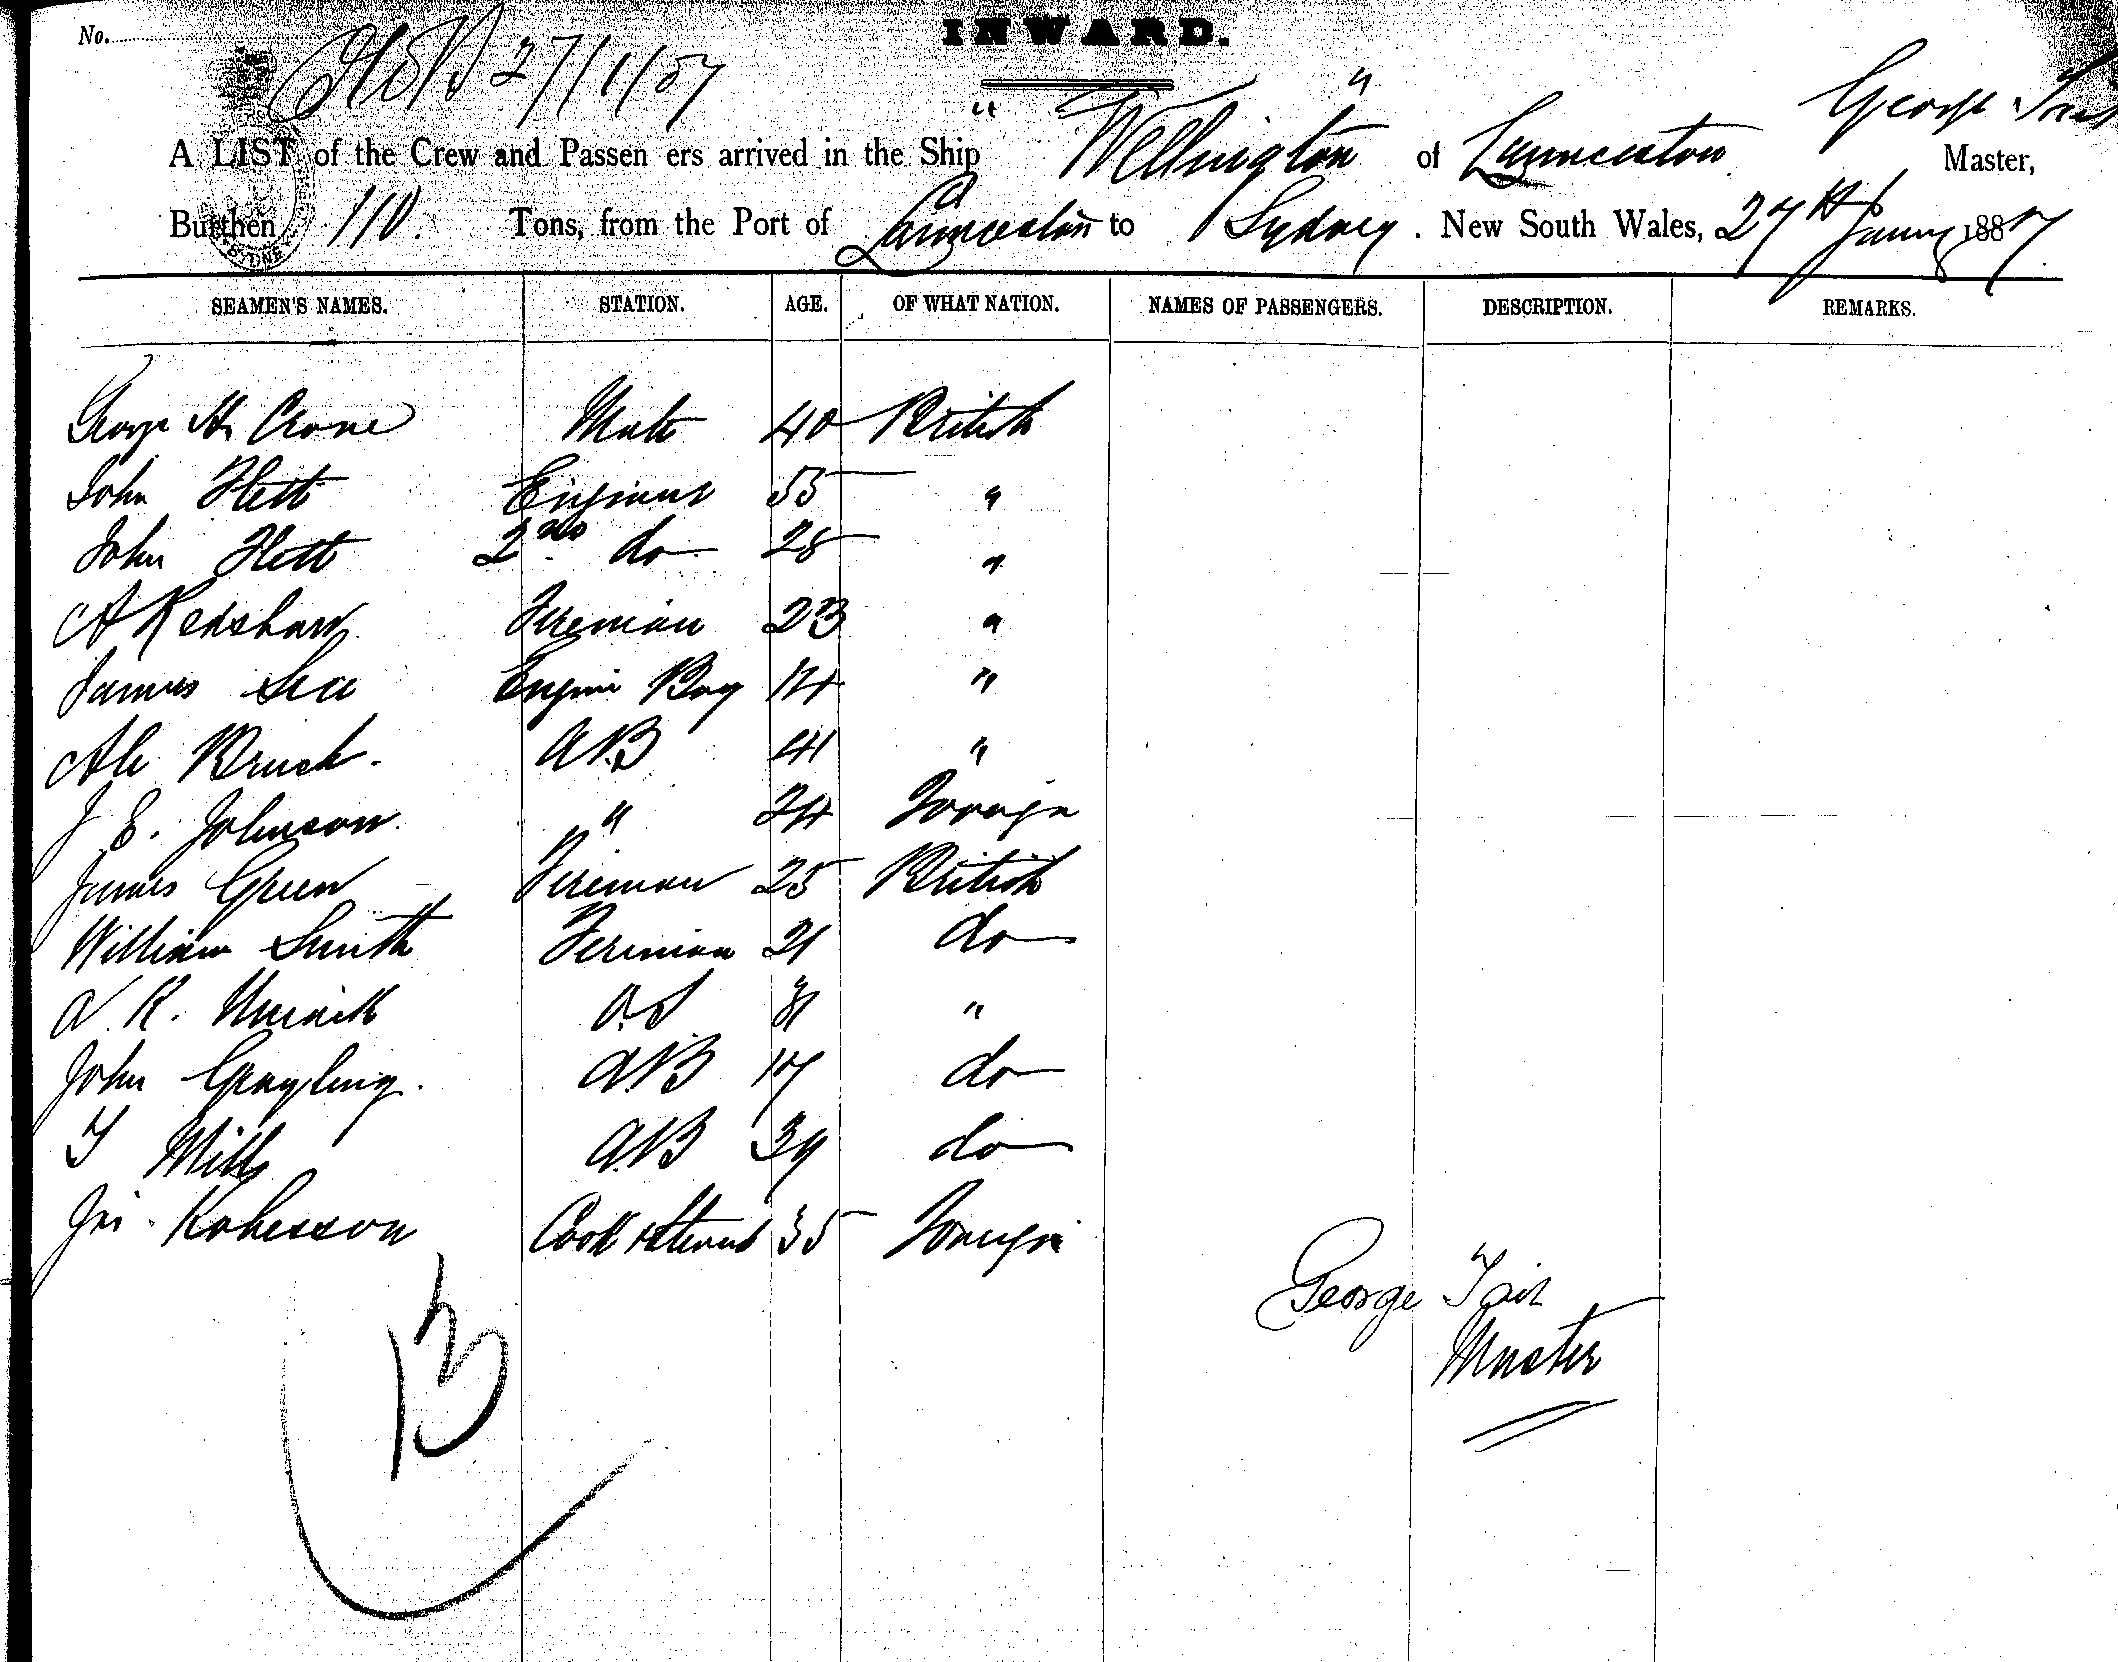 No.
INWARD.
27/1/87
George Tait
A LIST of the Crew and Passen ers arrived in the Ship "Wellington" of Launceston Master,
Burthen 110. Tons, from the Port of Launceston to Sydney. New South Wales, 27th January 1887
SEAMEN'S NAMES. STATION. AGE. OF WHAT NATION. NAMES OF PASSENGERS. DESCRIPTION. REMARKS.
George H. Crone Mate 40 British
John Flett Engineer 55 "
John Flett 2nd do 28 "
A Redshaw Fireman 23 "
James Lee Engine Boy 14 "
Brush. AB 41 "
J E. Johnson " 24 Foreign
James Green Fireman 25 British
William Smith Fireman 21 do
A. R. O.S "
John Grayling. AB 17 do
Mills AB 39 do
Cook & Steward 35 Foreign
13
George Tait
Master